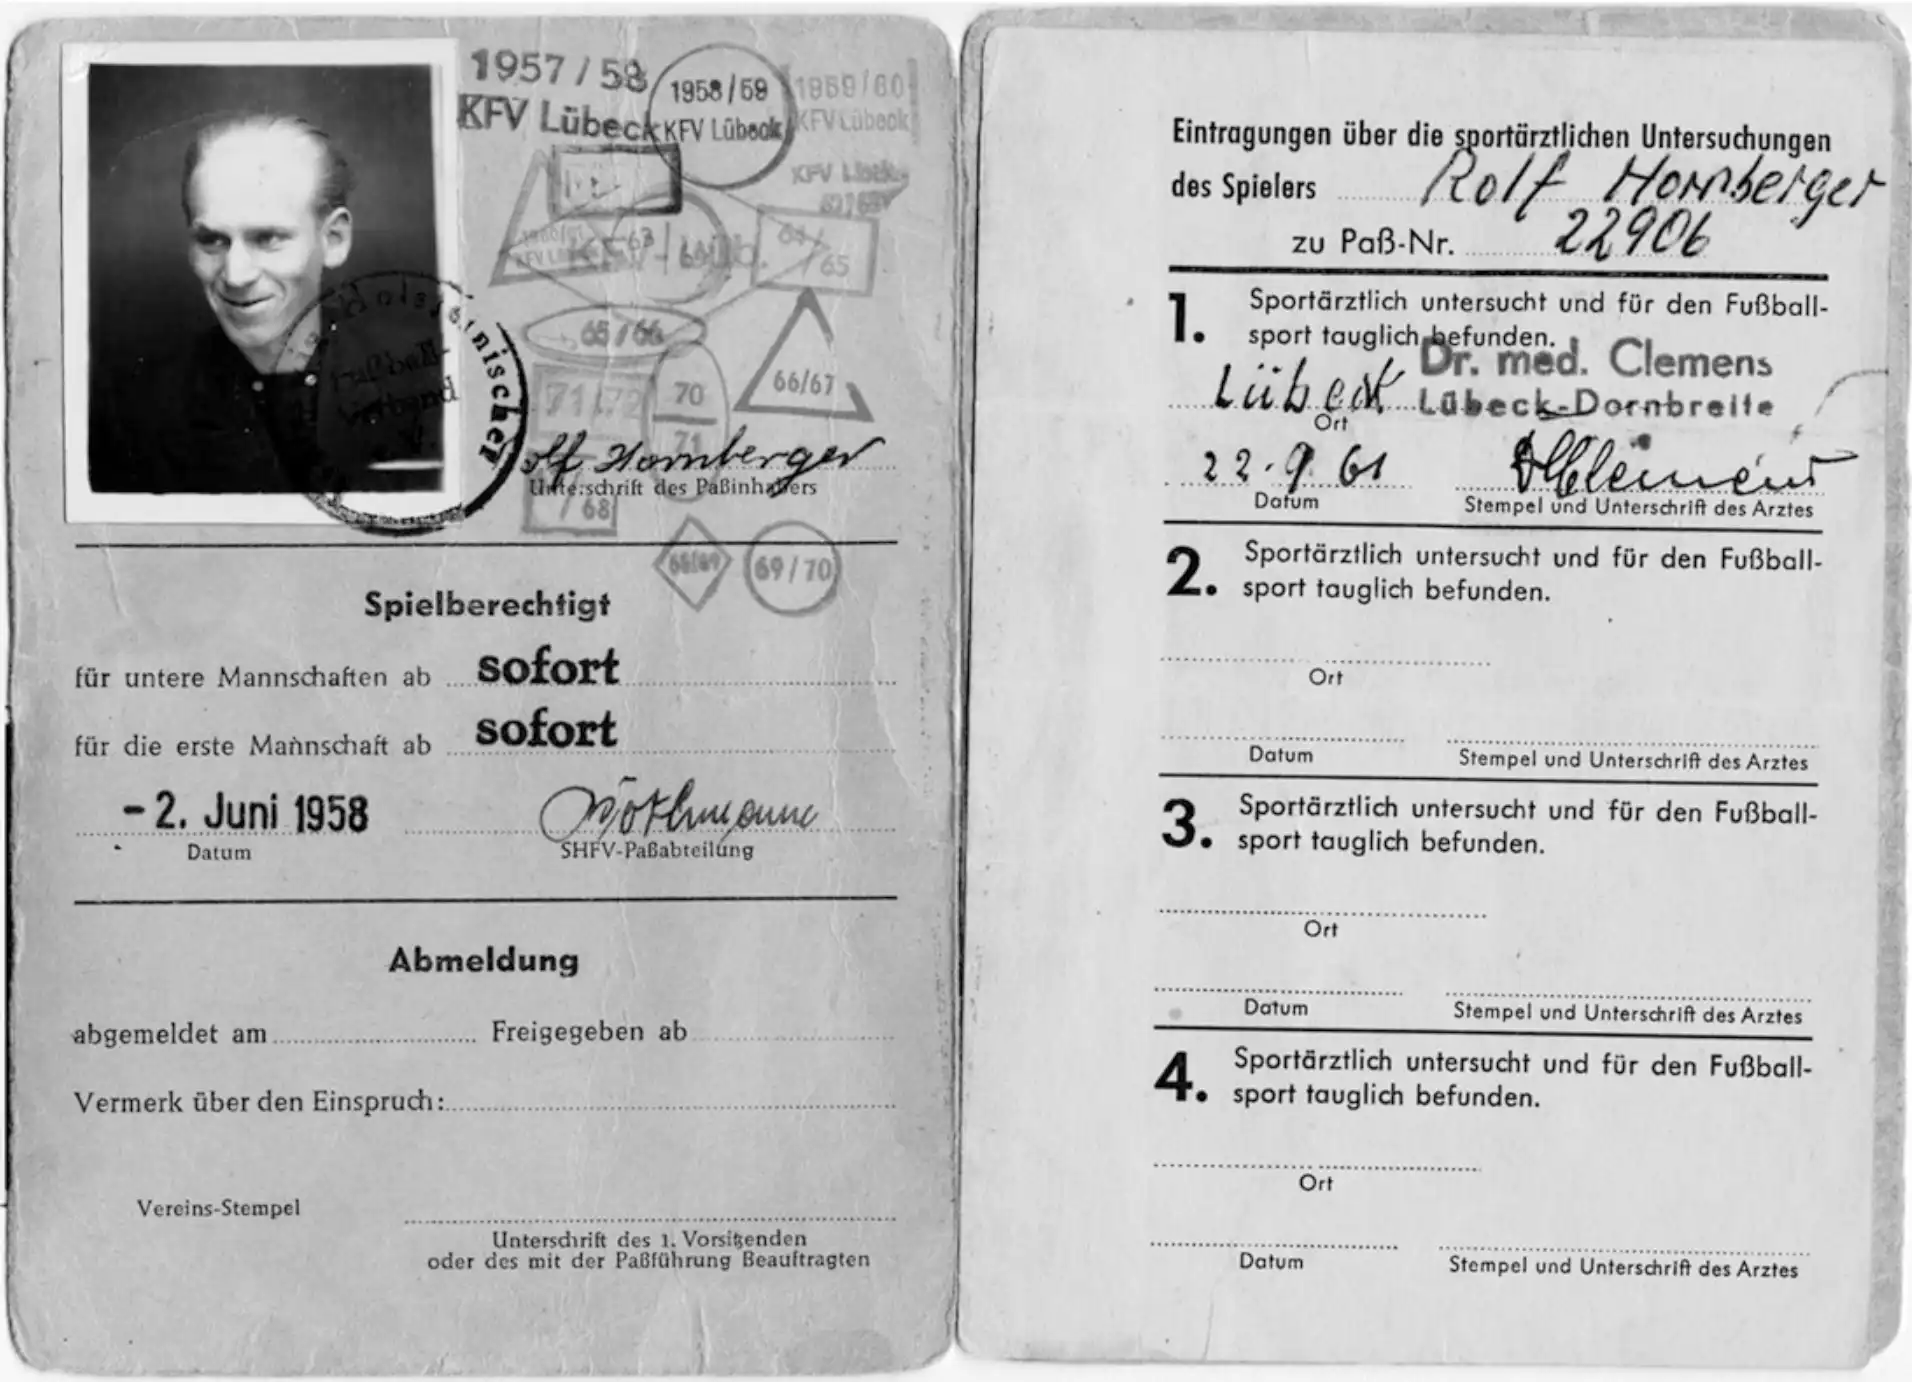 1957/58
KFV Lübeck
1958/59
KFV Lübeck
1959/60
KFV Lübeck
KFV Lübeck
64/65
65/66
66/67
71/72
70
71
/68
68/69
69/70
Holsteinischer
Fußball-
Verband
Rolf Hornberger
Unterschrift des Paßinhabers
Spielberechtigt
für untere Mannschaften ab sofort
für die erste Mannschaft ab sofort
-2. Juni 1958
Datum
SHFV-Paßabteilung
Abmeldung
abgemeldet am Freigegeben ab
Vermerk über den Einspruch:
Vereins-Stempel
Unterschrift des 1. Vorsitzenden
oder des mit der Paßführung Beauftragten
Eintragungen über die sportärztlichen Untersuchungen
des Spielers Rolf Hornberger
zu Paß-Nr. 22906
1. Sportärztlich untersucht und für den Fußball-
sport tauglich befunden.
Dr. med. Clemens
Lübeck Lübeck-Dornbreite
Ort
22.9.61 Clemens
Datum Stempel und Unterschrift des Arztes
2. Sportärztlich untersucht und für den Fußball-
sport tauglich befunden.
Ort
Datum Stempel und Unterschrift des Arztes
3. Sportärztlich untersucht und für den Fußball-
sport tauglich befunden.
Ort
Datum Stempel und Unterschrift des Arztes
4. Sportärztlich untersucht und für den Fußball-
sport tauglich befunden.
Ort
Datum Stempel und Unterschrift des Arztes